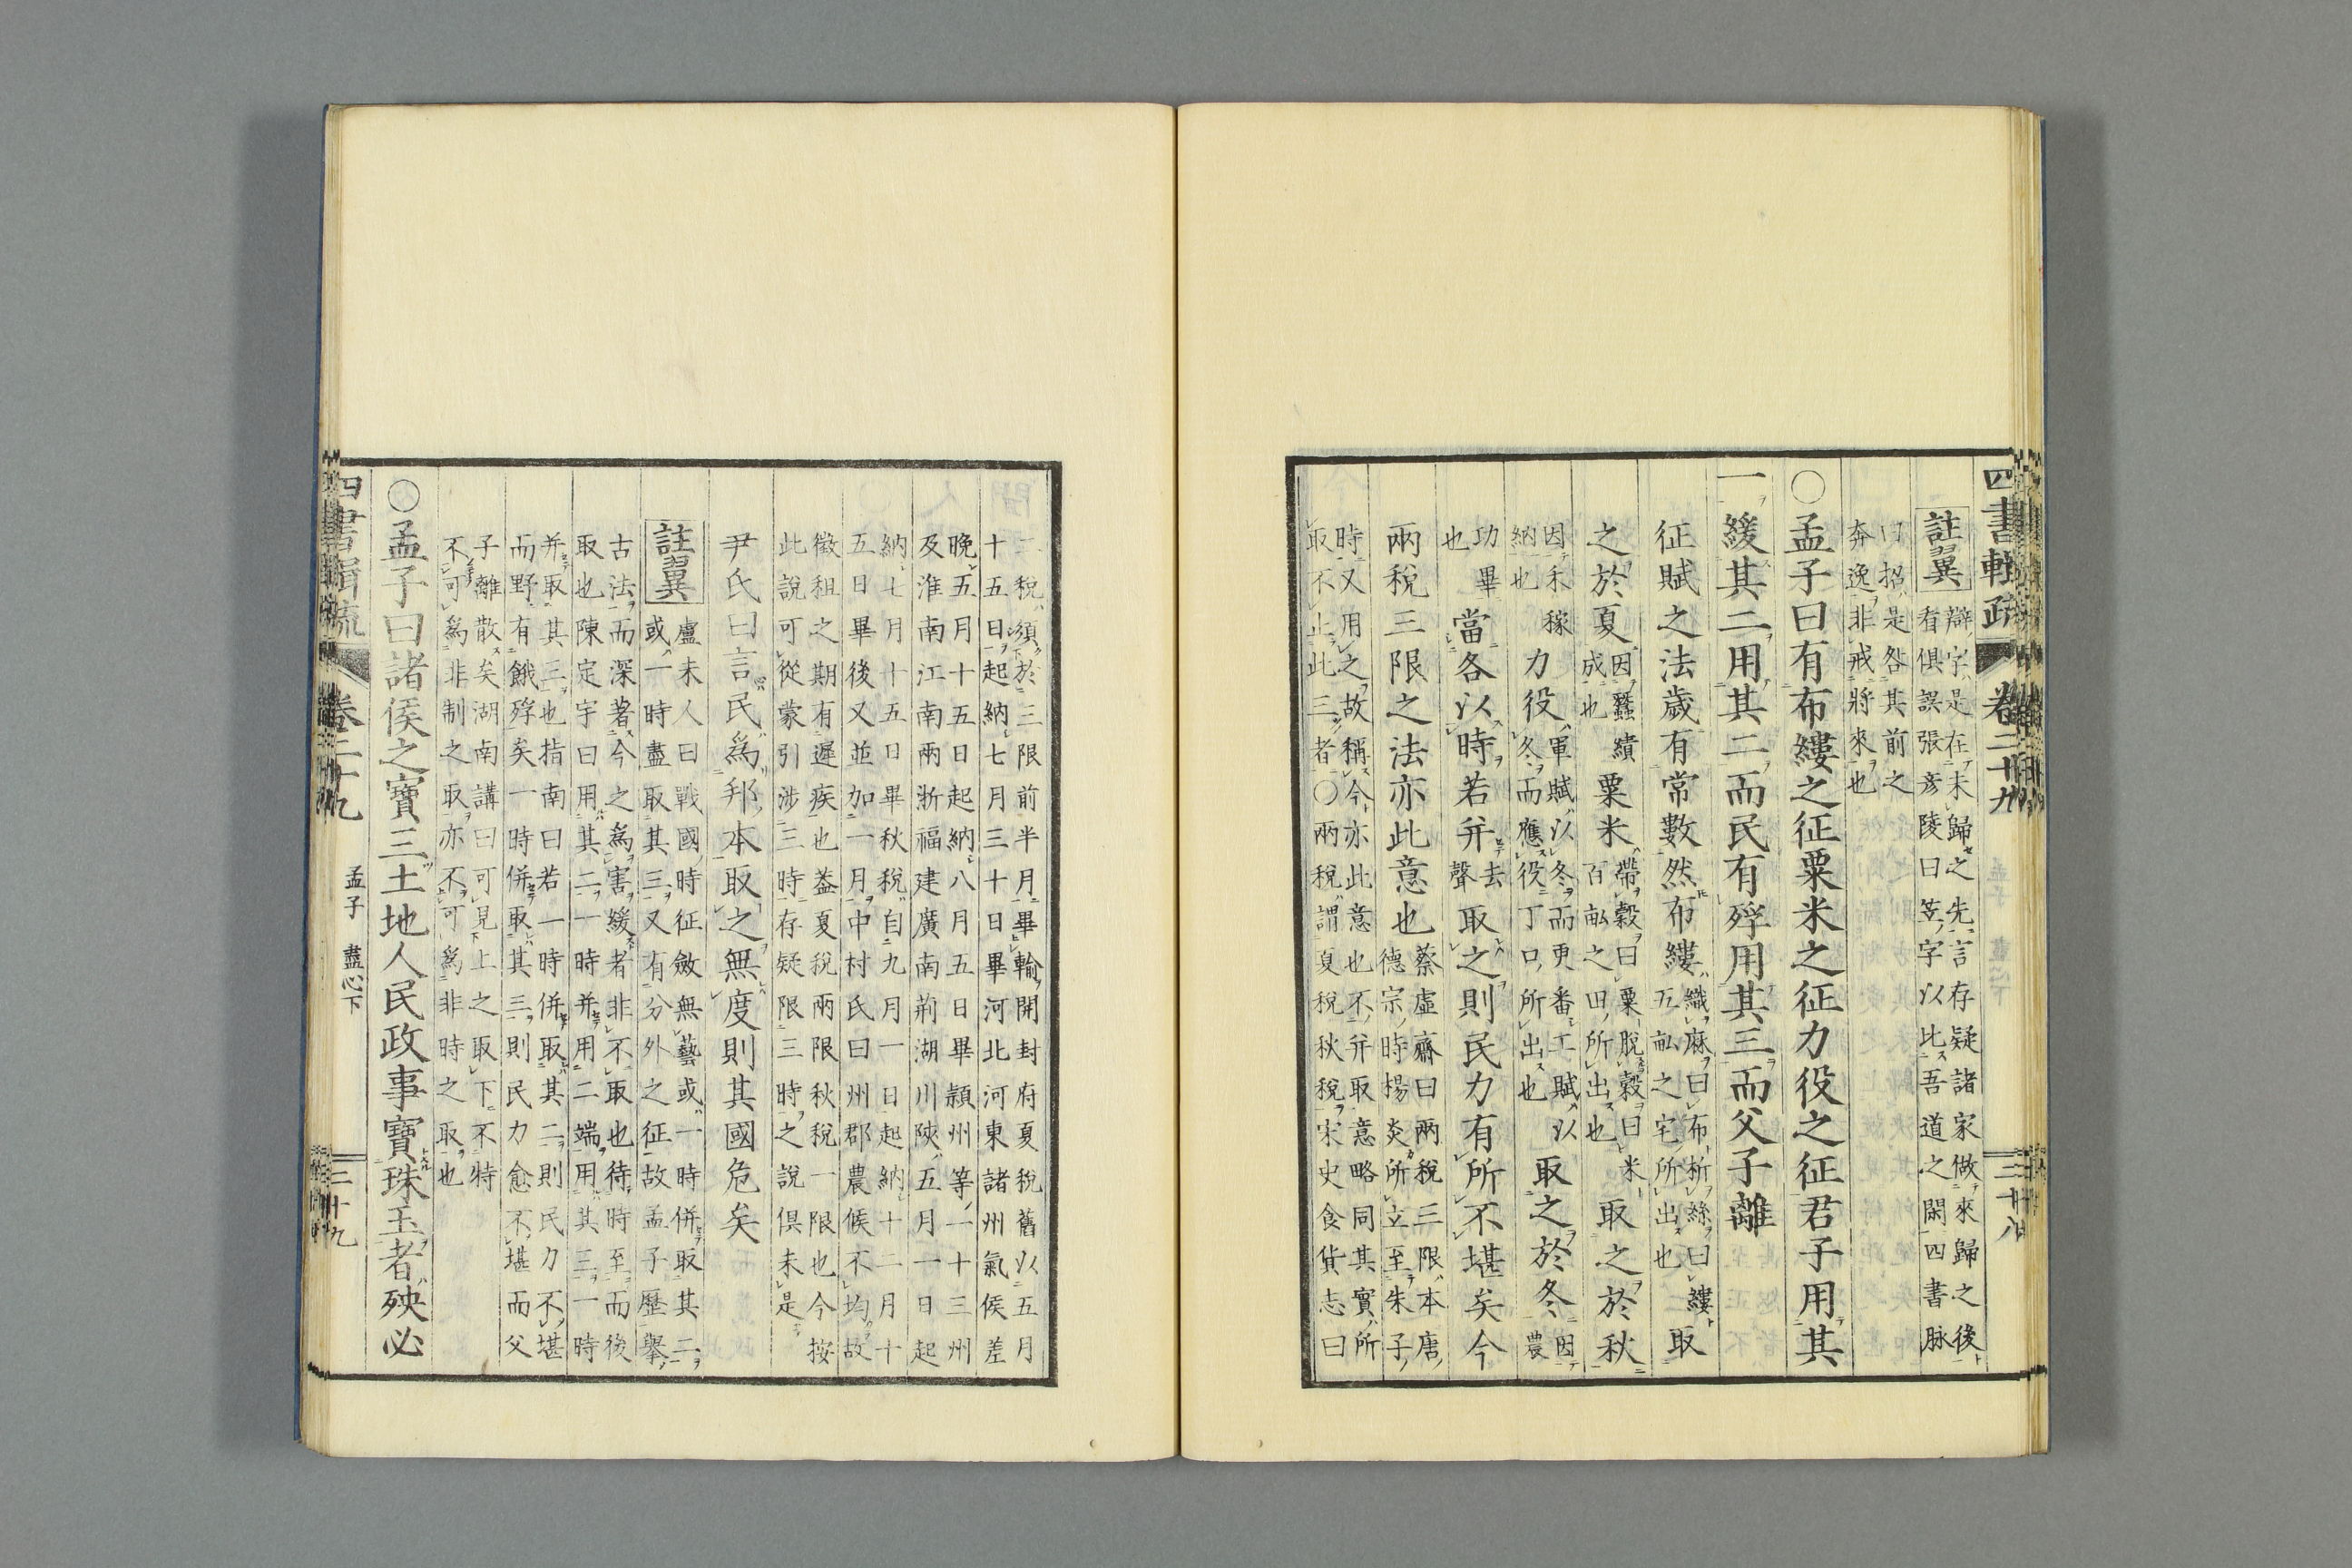 四書輯疏 卷二十九 孟子 盡心下 三十八
註翼
辯字是在未歸之先言存疑諸家做來歸之後
看俱誤張彥陵曰笠字以比吾道之閑四書脉
曰招是咎其前之
奔逸非戒將來也
○孟子曰有布縷之征粟米之征力役之征君子用其
一緩其二用其二而民有殍用其三而父子離
征賦之法歲有常數然布縷
織麻曰布析絲曰縷
五畝之宅所出也
取
之於夏
因蠶績
成也
粟米
帶穀曰粟脫穀曰米
百畝之田所出也
取之於秋
因禾稼
納也
力役
軍賦以冬而更番工賦以
冬而應役丁口所出也
取之於冬
因
農
功畢
也
當各以時若并
去
聲
取之則民力有所不堪矣今
兩稅三限之法亦此意也
蔡虛齋曰兩稅三限本唐
德宗時楊炎所立至朱子
時又用之故稱今亦此意也不并取意略同其實所
取不止此三者○兩稅謂夏稅秋稅宋史食貨志曰
二稅須於三限前半月畢輸開封府夏稅舊以五月
十五日起納七月三十日畢河北河東諸州氣候差
晚五月十五日起納八月五日畢潁州等一十三州
及淮南江南兩浙福建廣南荊湖川陝五月一日起
納七月十五日畢秋稅自九月一日起納十二月十
五日畢後又並加一月中村氏曰州郡農候不均故
徵租之期有遲疾也蓋夏稅兩限秋稅一限也今按
此說可從蒙引涉三時存疑限三時之說俱未是
尹氏曰言民爲邦本取之無度則其國危矣
註翼
盧未人曰戰國時征斂無藝或一時併取其二
或一時盡取其三又有分外之征故孟子歷舉
古法而深著今之爲害緩者非不取也待時至而後
取也陳定宇曰用其二一時并用二端用其三一時
并取其三也指南曰若一時併取其二則民力不堪
而野有餓殍矣一時併取其三則民力愈不堪而父
子離散矣湖南講曰可見上之取下不特
不可爲非制之取亦不可爲非時之取也
○孟子曰諸侯之寶三土地人民政事寶珠玉者殃必
四書輯疏 卷二十九 孟子 盡心下 三十九